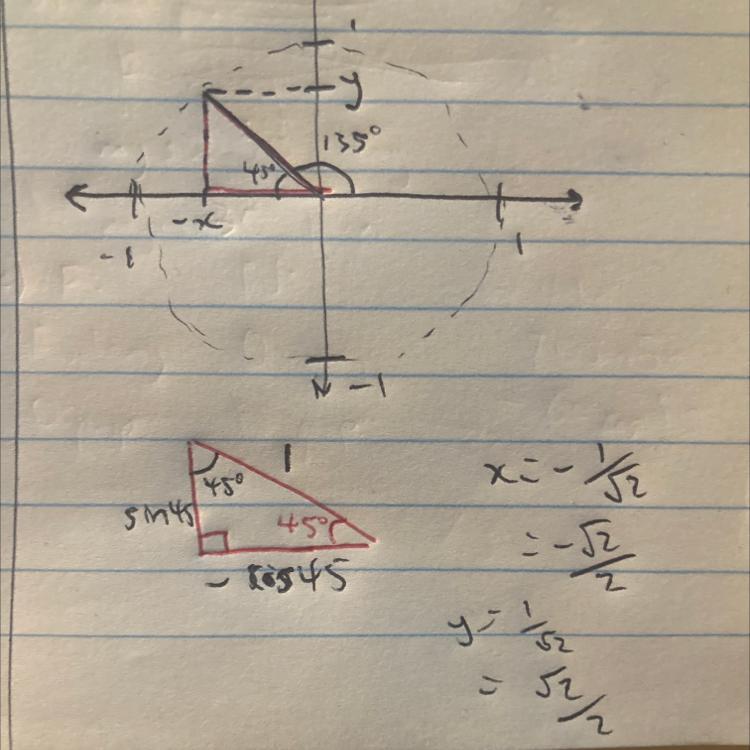 1
y
135°
45°
-x
-1
1
-1
1
45°
sin45
45°
- cos45
x = - 1/√2
= - √2/2
y = 1/√2
= √2/2